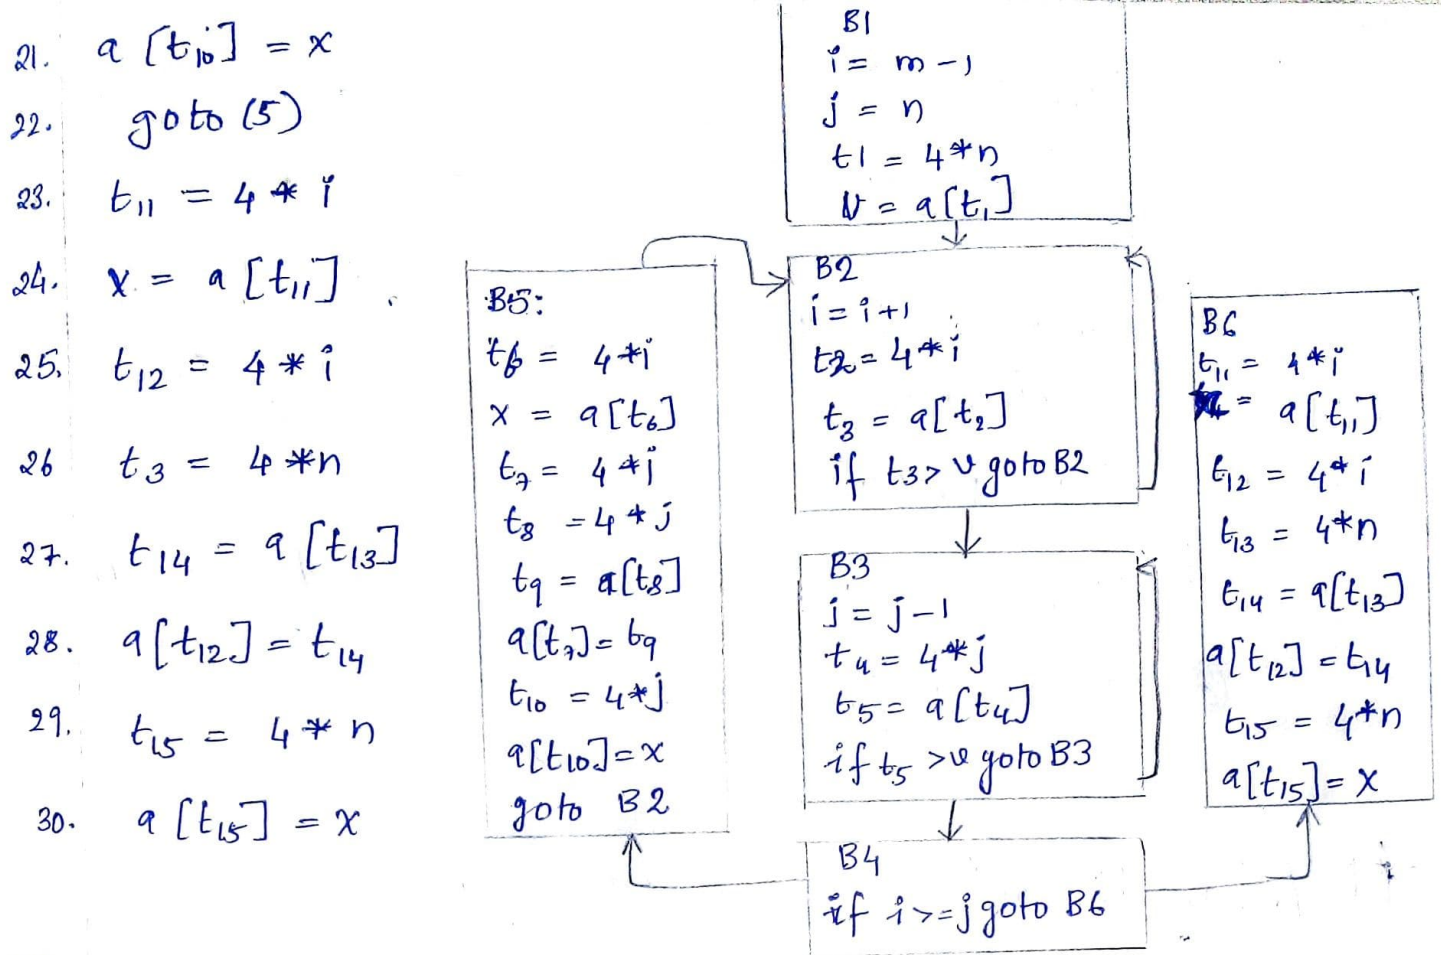 21. a[t10] = x
22. goto (5)
23. t11 = 4 * i
24. x = a[t11]
25. t12 = 4 * i
26 t3 = 4*n
27. t14 = a[t13]
28. a[t12] = t14
29. t15 = 4 * n
30. a[t15] = x
B5:
t6 = 4*i
x = a[t6]
t7 = 4*j
t8 = 4*j
t9 = a[t8]
a[t7] = t9
t10 = 4*j
a[t10] = x
goto B2
B1
i = m-1
j = n
t1 = 4*n
v = a[t1]
B2
i = i+1
t2 = 4*i
t3 = a[t2]
if t3 > v goto B2
B3
j = j-1
t4 = 4*j
t5 = a[t4]
if t5 > v goto B3
B4
if i >= j goto B6
B6
t11 = 4*i
= a[t11]
t12 = 4*i
t13 = 4*n
t14 = a[t13]
a[t12] = t14
t15 = 4*n
a[t15] = x